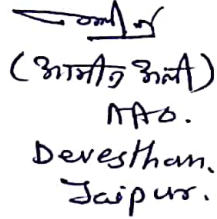 (आमीन अली)
AAO.
Devesthan.
Jaipur.